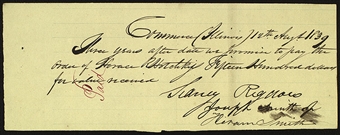 Commerce (Illinois) 12th Augt 1839
Three years after date we promise to pay the
order of Horace R Hotchkiss Fifteen Hundred dollars
for value received
Paid
Sidney Rigdon
Joseph Smith Jr
Hiram Smith